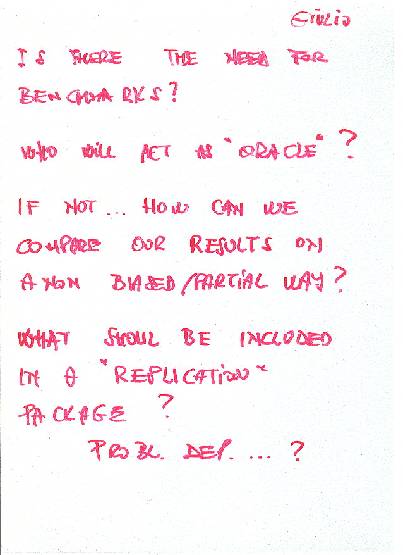 GIULIO
IS THERE THE NEED FOR
BENCHMARKS?
WHO WILL ACT AS "ORACLE"?
IF NOT... HOW CAN WE
COMPARE OUR RESULTS ON
A NON BIASED/PARTIAL WAY?
WHAT SHOUL BE INCLUDED
IN A "REPLICATION"
PACKAGE ?
PROBL. DEP. ... ?